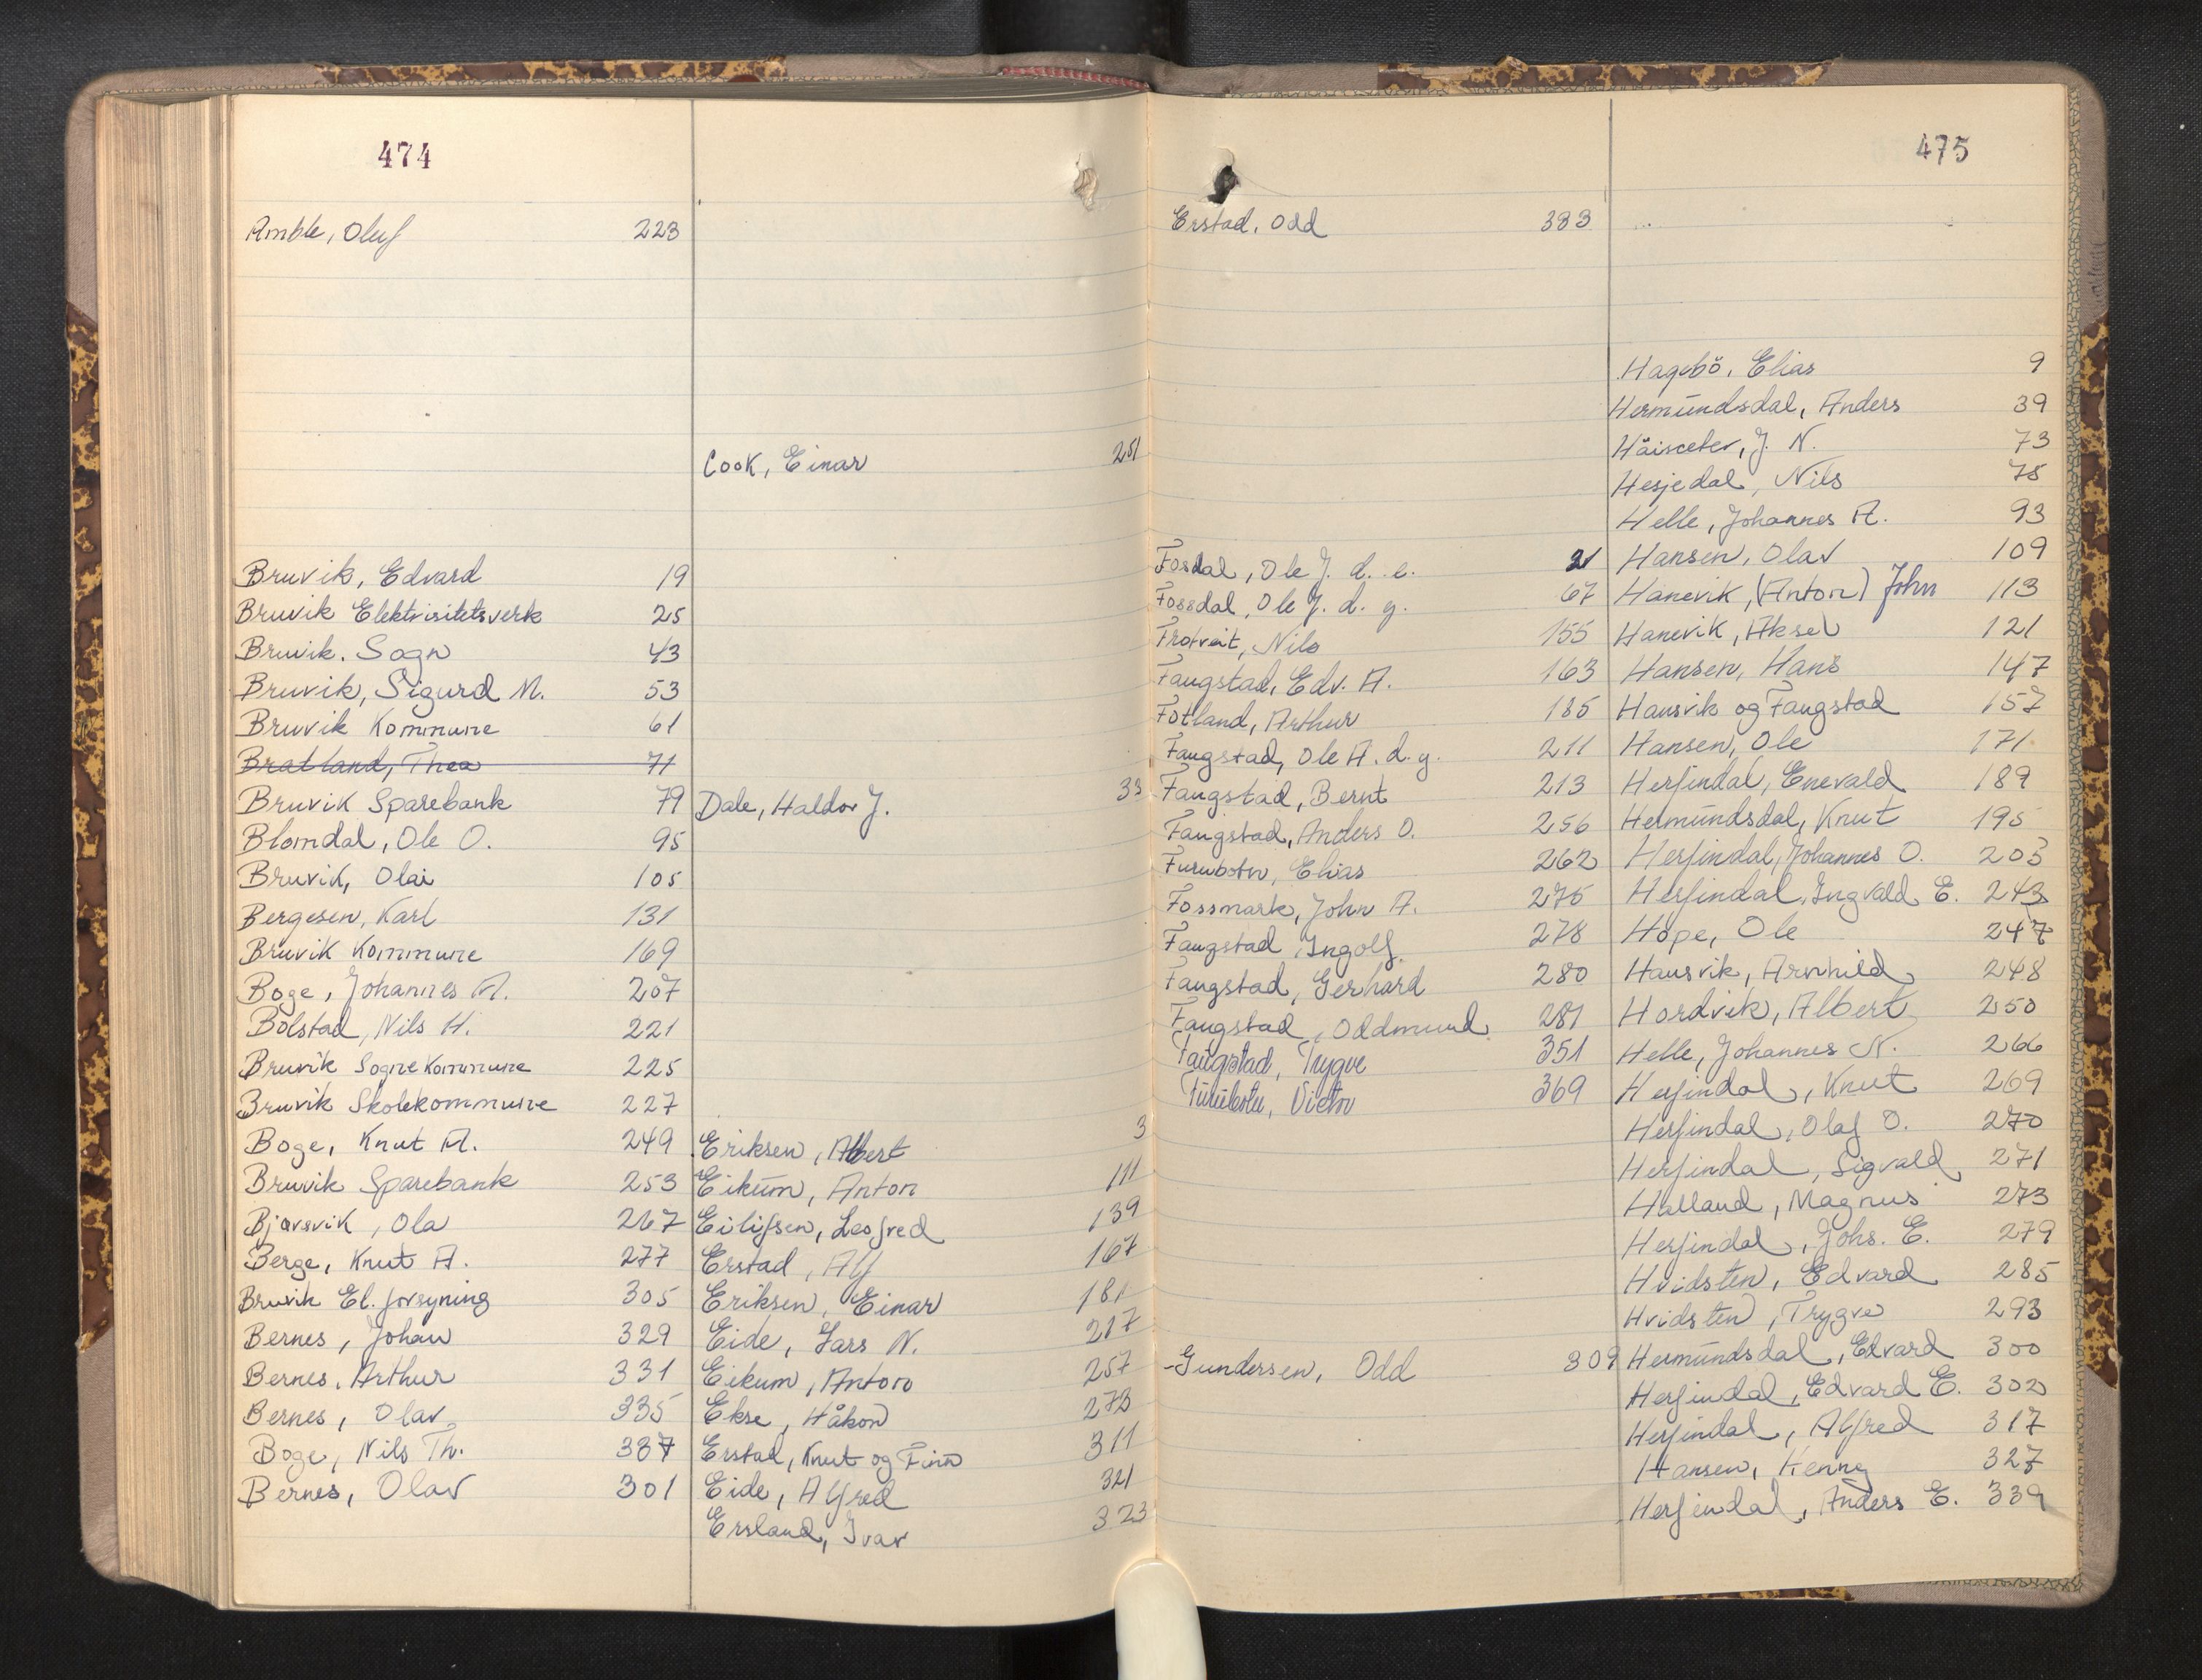 474
Amble, Oluf 223
Bruvik, Edvard 19
Bruvik Elektrisitetsverk 25
Bruvik. Sogn 43
Bruvik, Sigurd M. 53
Bruvik Kommune 61
Bratland, Thea 71
Bruvik Sparebank 79
Blomdal, Ole O. 95
Bruvik, Olai 105
Bergesen, Karl 131
Bruvik Kommune 169
Boge, Johannes A. 207
Bolstad, Nils H. 221
Bruvik Sognekommune 225
Bruvik Skolekommune 227
Boge, Knut A. 249
Bruvik Sparebank 253
Bjørsvik, Ola 267
Berge, Knut A. 277
Bruvik El. forsyning 305
Bernes, Johan 329
Bernes, Arthur 331
Bernes, Olav 335
Boge, Nils Th. 387
Bernes, Olav 301
Cook, Einar 251
Dale, Haldor J. 33
Eriksen, Albert 3
Eikum, Anton 111
Eilifsen, Leofred 139
Erstad, Alf 167
Eriksen, Einar 181
Eide, Lars N. 217
Eikum, Anton 257
Ekse, Håkon 273
Erstad, Knut og Finn 311
Eide, Alfred 321
Ersland, Ivar 323
475
Erstad, Odd 383
Fosdal, Ole J. d. e. 21
Fossdal, Ole J. d. y. 67
Frotveit, Nils 155
Faugstad, Edv. A. 163
Fotland, Arthur 185
Faugstad, Ole A. d. y. 211
Faugstad, Bernt 213
Faugstad, Anders O. 256
Furubotn, Elias 262
Fossmark, John A. 275
Faugstad, Ingolf. 278
Faugstad, Gerhard 280
Faugstad, Oddmund 281
Faugstad, Trygve 351
Furubotn, Victor 369
Gundersen, Odd 309
Hagebö, Elias 9
Hermundsdal, Anders 39
J. N. 73
Hesjedal, Nils 75
Helle, Johannes A. 93
Hansen, Olav 109
Hanevik, (Anton) John 113
Hanevik, Aksel 121
Hansen, Hans 147
Hausvik og Faugstad 157
Hansen, Ole 171
Herfindal, Enevald 189
Helmundsdal, Knut 195
Herfindal, Johannes O. 203
Herfindal, Ingvald E. 243
Hope, Ole 247
Hausvik, Arnhild 248
Hordvik, Albert 250
Helle, Johannes N. 266
Herfindal, Knut 269
Herfindal, Olaf O. 270
Herfindal, Sigvald 271
Halland, Magnus 273
Herfindal, Johs. E. 279
Hvidsten, Edvard 285
Hvidsten, Trygve 293
Hermundsdal, Edvard 300
Herfindal, Edvard E. 302
Herfindal, Alfred 317
Hansen, Henny 327
Herfindal, Anders E. 339